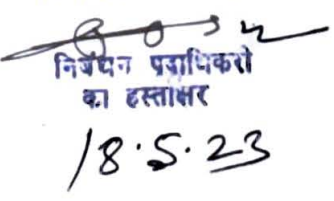 निबंधन पदाधिकारी
का हस्ताक्षर
18.5.23